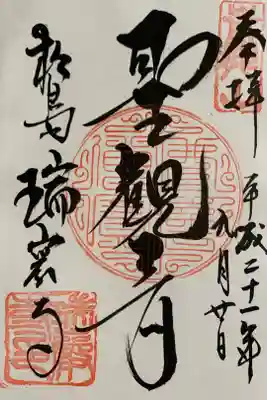 奉拝
平成二十一年
九月廿日
聖観音
松島
瑞巖寺